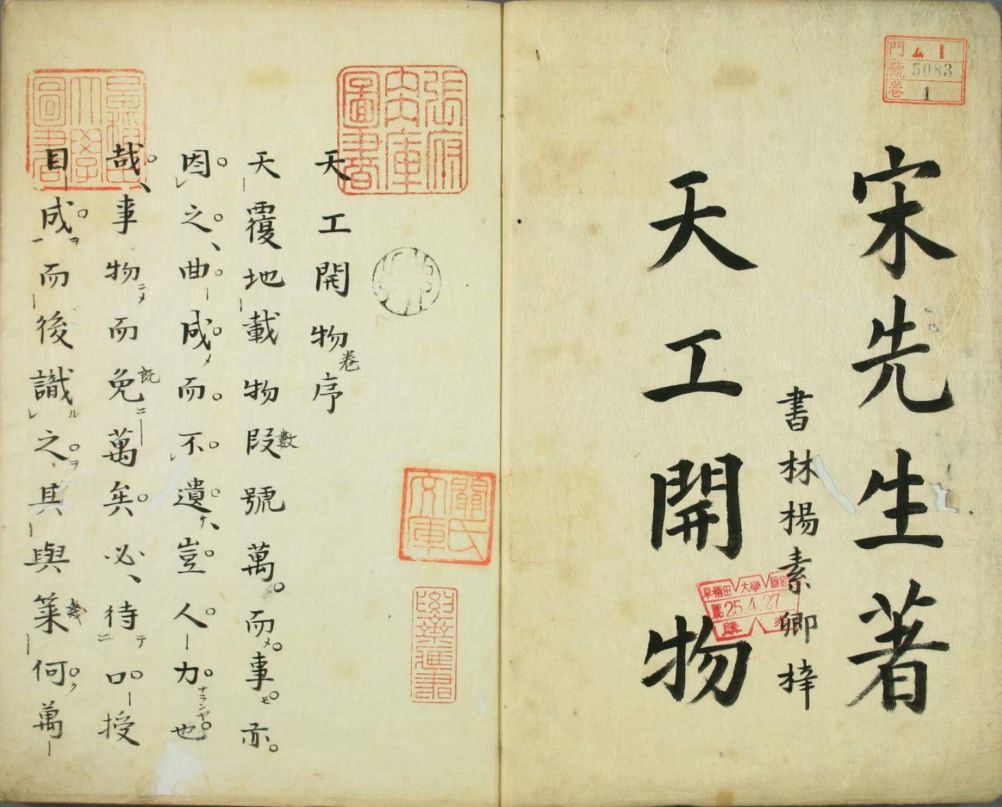 門 ム 1
號 5083
卷 1
宋先生著
書林楊素卿梓
天工開物
25.4.27
張府
内庫
圖書
天工開物卷序
關氏
文庫
天覆地載物段數號萬。而事亦。
因之、曲成而不遺、豈人力也
哉、事物而免既萬矣必、待口授
目成而後識之其與䇿幾何萬